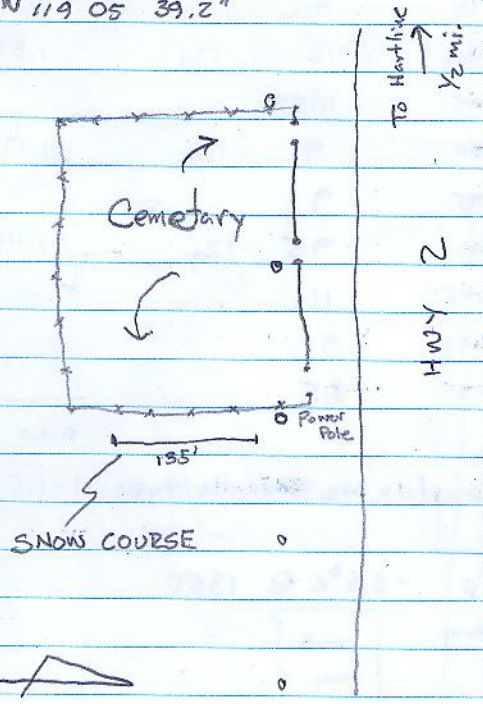 W 119 05 39.2"
To Hartline
1/2 mi.
Cemetary
HWY 2
Power
Pole
135'
SNOW COURSE